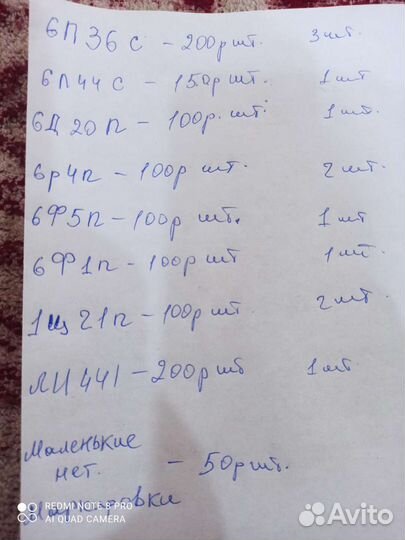 6П36С - 200р шт. 3 шт.
6П44С - 150р шт. 1 шт
6Д20П - 100р. шт. 1 шт.
6р4п - 100р шт. 2 шт.
6Ф5п - 100р шт. 1 шт
6Ф1п - 100р шт 1 шт.
1ц21п - 100р шт. 2 шт.
ЛИ441 - 200р шт 1 шт
Маленькие
нет. - 50р шт.
REDMI NOTE 8 PRO
AI QUAD CAMERA
Avito